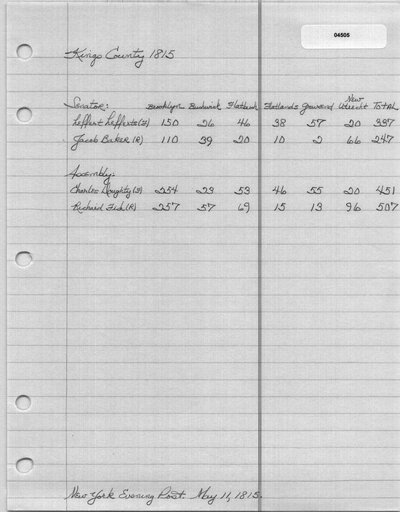 04505
Kings County 1815
Senator: Brooklyn Bushwick Flatbush Flatlands Gravesend New Utrecht Total
Leffert Lefferts (F) 150 26 46 38 57 20 337
Jacob Baker (R) 110 39 20 10 2 66 247
Assembly:
Charles Doughty (F) 254 23 53 46 55 20 451
Richard Fish (R) 257 57 69 15 13 96 507
New York Evening Post. May 11, 1815.